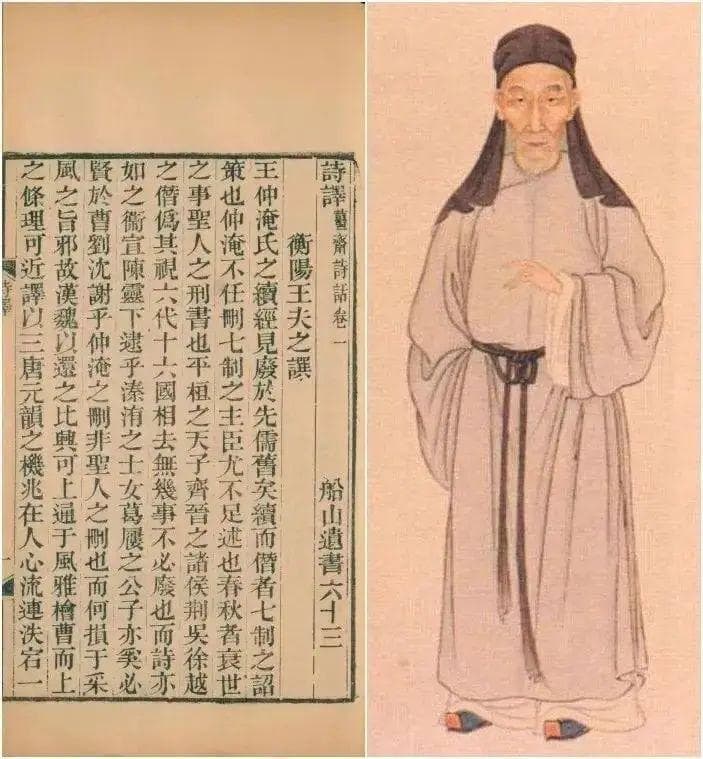 詩譯 薑齋詩話卷一 船山遺書六十三
衡陽王夫之譔
王仲淹氏之續經見廢於先儒舊矣續而僭者七制之詔
策也仲淹不任刪七制之主臣尤不足述也春秋者衰世
之事聖人之刑書也平桓之天子齊晉之諸侯荆吳徐越
之僭僞其視六代十六國相去無幾事不必廢也而詩亦
如之衞宣陳靈下逮乎溱洧之士女葛屨之公子亦奚必
賢於曹劉沈謝乎仲淹之刪非聖人之刪也而何損于采
風之旨邪故漢魏以還之比興可上通于風雅檜曹而上
之條理可近譯以三唐元韻之機兆在人心流連泆宕一
詩譯 一